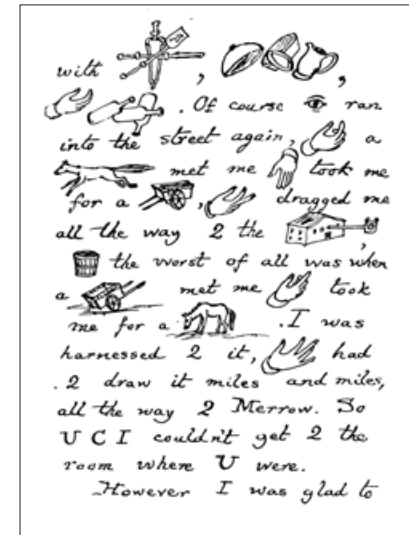 with , ,
. Of course ran
into the street again, a
met me took me
for a , dragged me
all the way 2 the ,
the worst of all was when
a met me took
me for a . I was
harnessed 2 it, had
. 2 draw it miles and miles,
all the way 2 Merrow. So
U C I couldn't get 2 the
room where U were.
However I was glad to